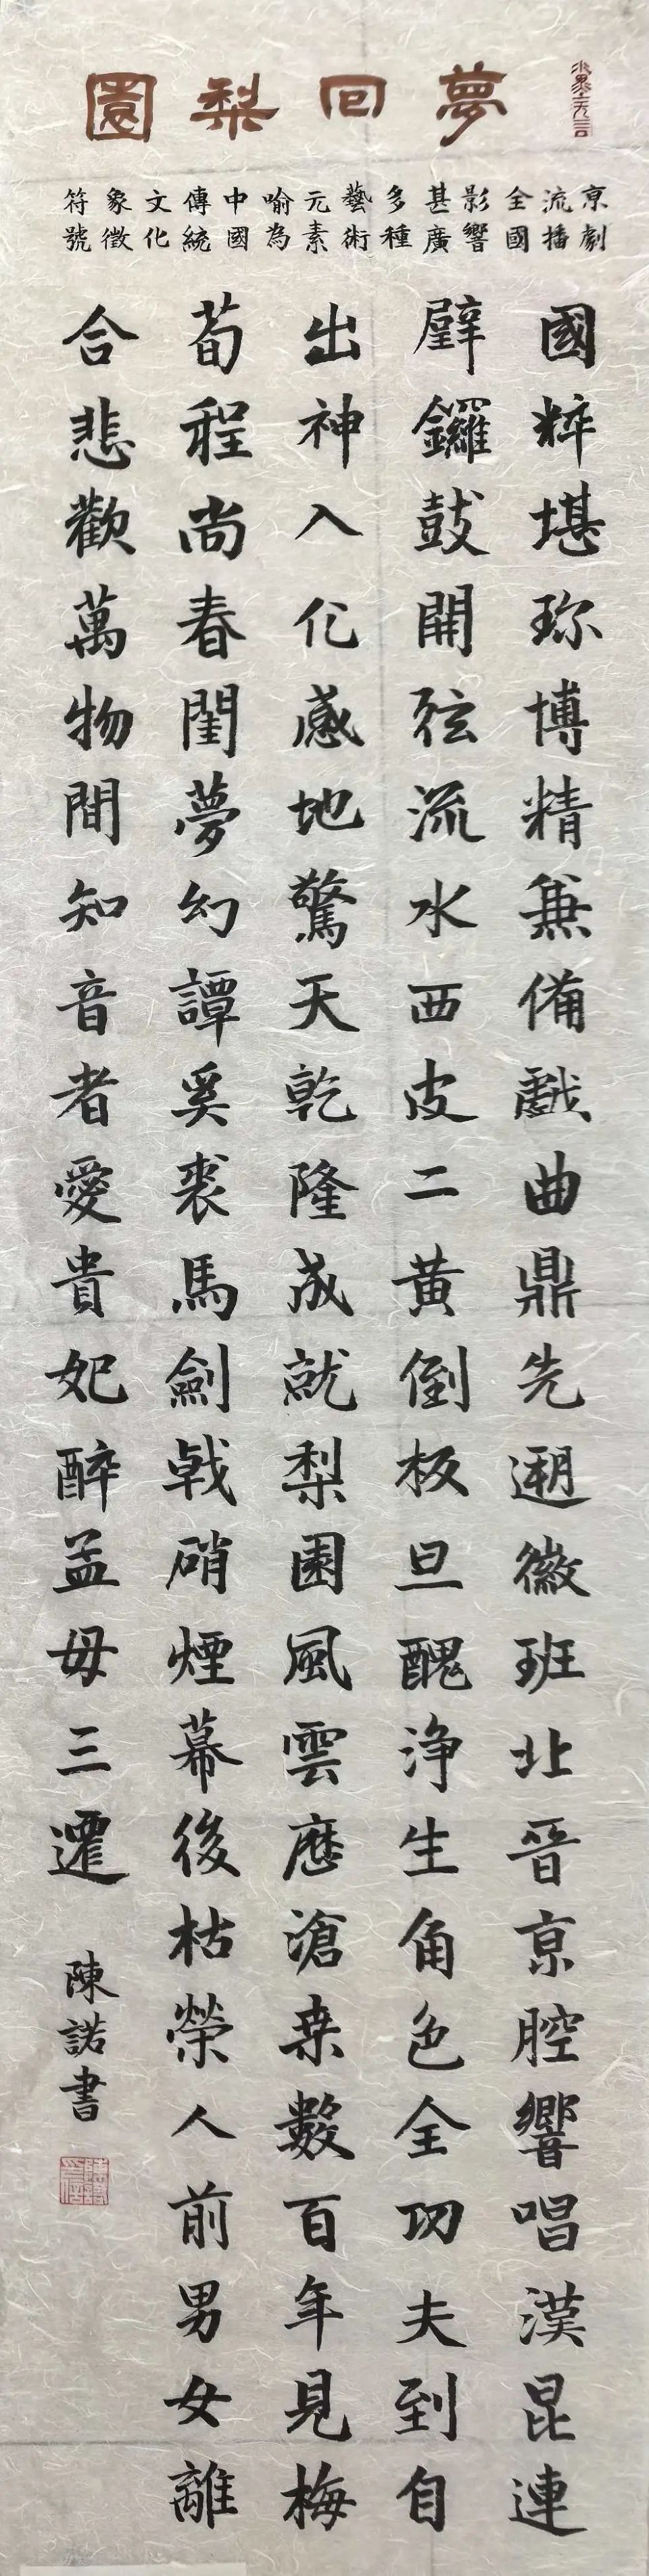 夢回梨園
京劇
流播
全國
影響
甚廣
多種
藝術
元素
喻為
中國
傳統
文化
象徵
符號
國粹堪珎博精兼備戲曲鼎先遡徽班北晉京腔響唱漢昆連
璧鑼鼓開弦流水西皮二黃倒板旦醜浄生角色全功夫到自
出神入化感地驚天乾隆成就梨園風雲歷滄桒數百年見梅
荀程尚春閨夢幻譚奚裘馬劍戟硝煙幕後枯榮人前男女離
合悲歡萬物間知音者愛貴妃醉孟母三遷
陳諾書